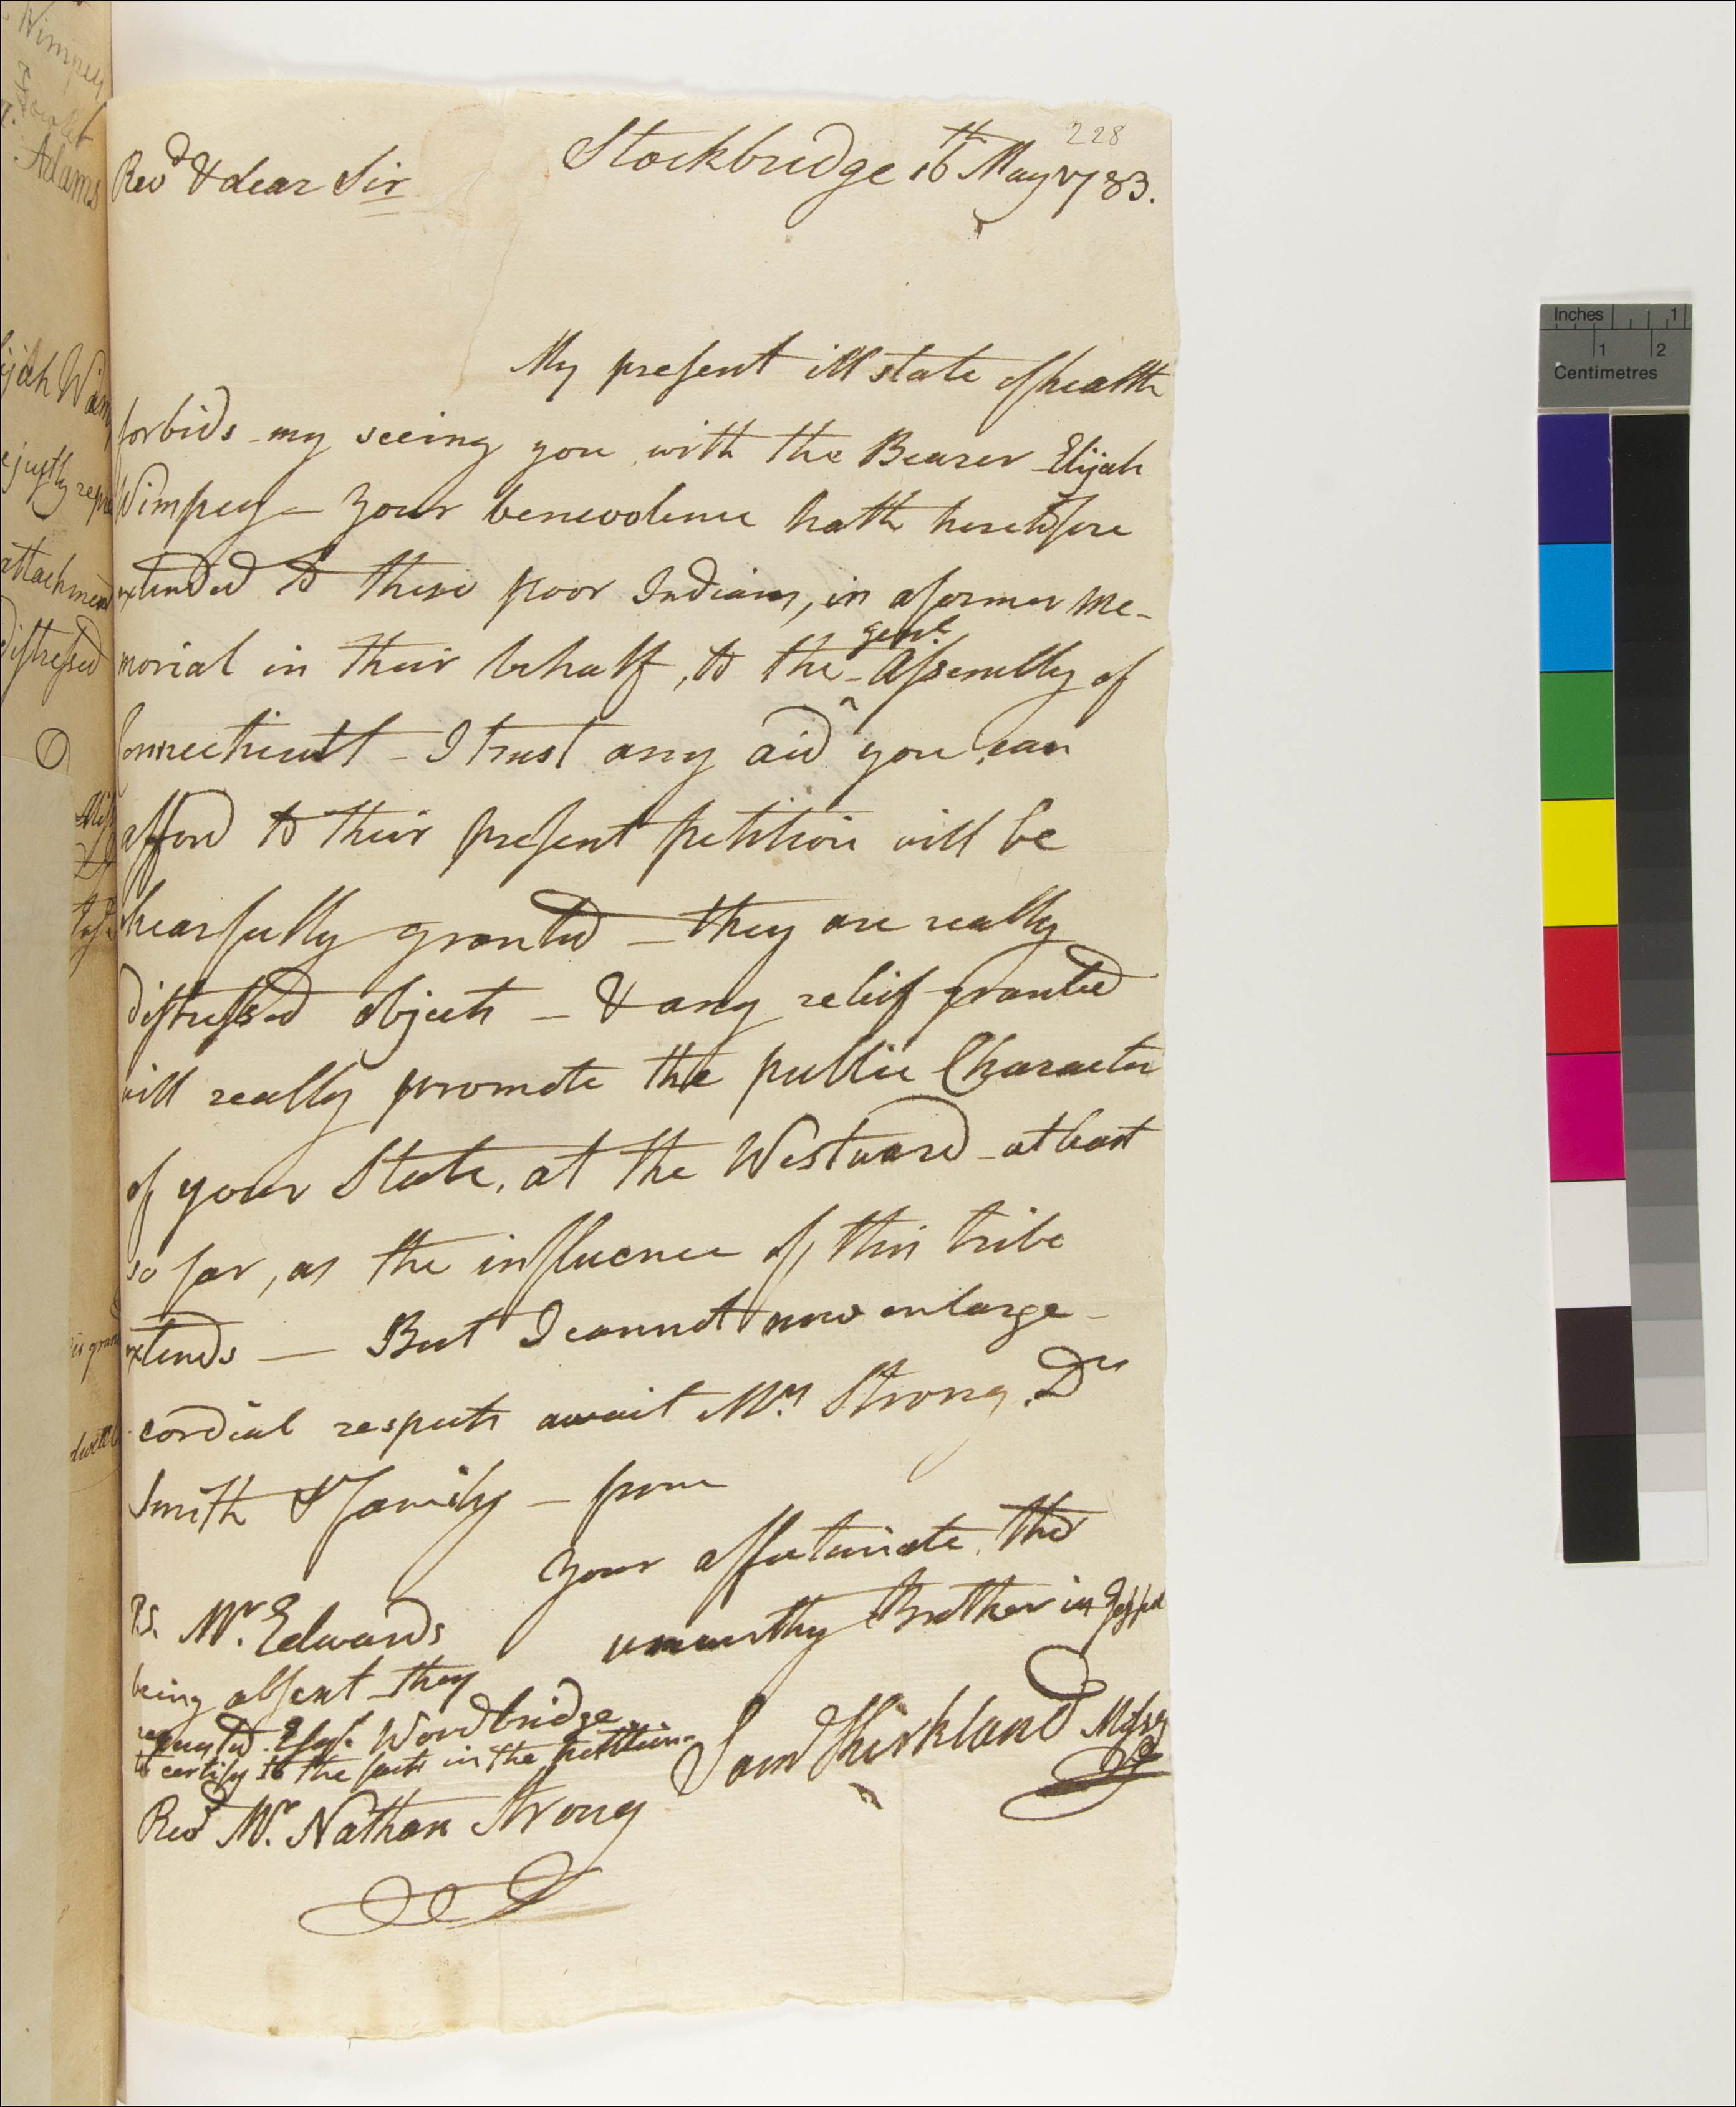 228
Stockbridge 16th May 1783.
Revd & dear Sir
My present ill state of health
forbids my seeing you with the Bearer Elijah
Wimpey — Your benevolence hath heretofore
extended to these poor Indians, in a former Me-
morial in their behalf, to the genl. Assembly of
Connecticutt - I trust any aid you can
afford to their present petition will be
chearfully granted — they are really
distressed objects — & any relief granted
will really promote the public Character
of your State, at the Westward - at least
so far, as the influence of this tribe
extends — But I cannot now enlarge -
cordial respects await Mrs Strong, Dn
Smith & family — from
your affectionate, tho'
unworthy Brother in Gospel
Sam Kirkland Missy
P.S. Mr. Edwards
being absent they
requested Esqr. Woodbridge
to certify to the facts in the petition.
Revd Mr. Nathan Strong
Wimpey
Adams
ijah Wim
e justly repre
attachment
distressed
Inches 1
1 2
Centimetres